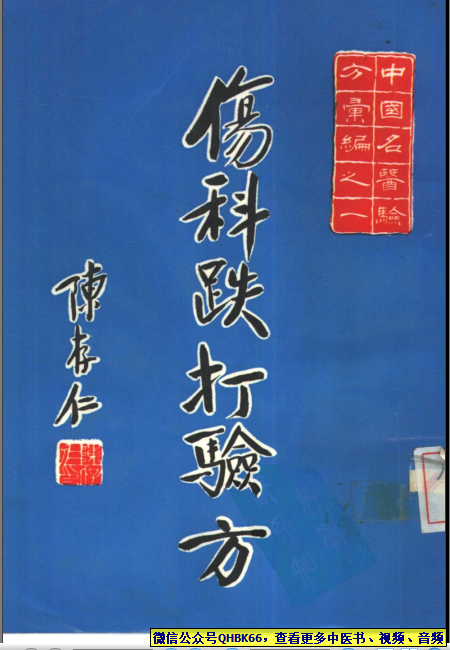 中國名醫驗
方彙編之一
傷科跌打驗方
陳存仁
微信公众号QHBK66，查看更多中医书、视频、音频